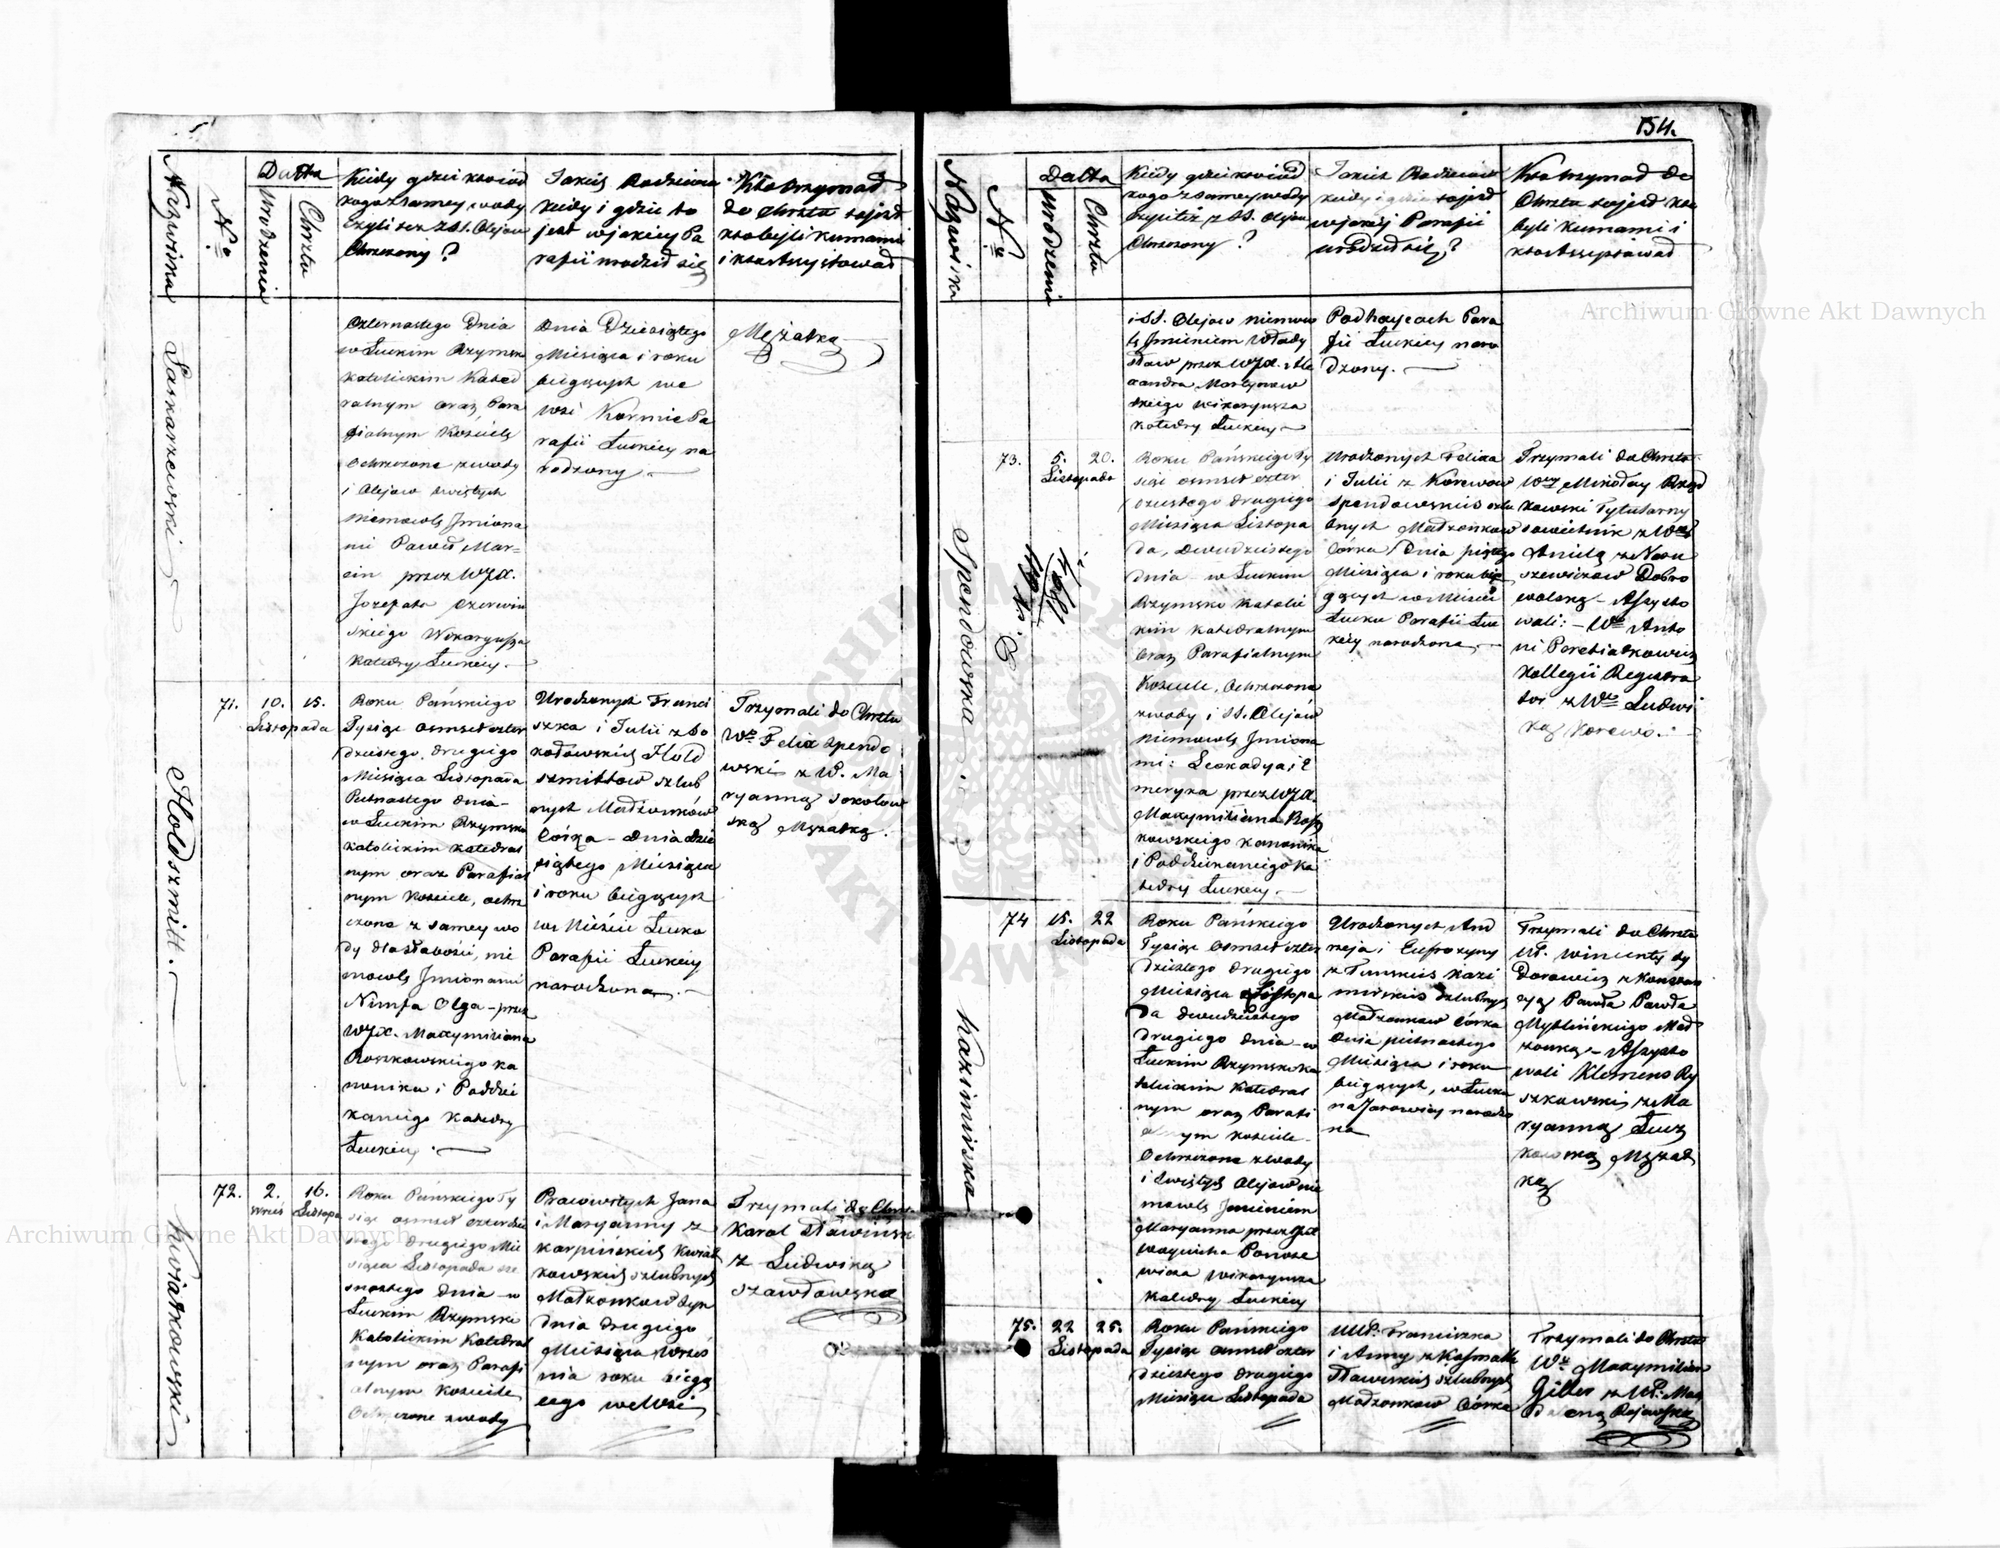 154.
Nazwiska
No
Datta
Urodzenia
Chrztu
Kiedy gdzie kto i od
kogo z samey wody
czyli tez z SS. Olejow
Chrzczony?
Jakich Rodzicow
kiedy i gdzie to
jest w jakiey Pa
rafii urodził się
Kto trzymał
do Chrztu to jest
kto byli kumami
i kto Assystował
Saskarzewski
czternastego Dnia
w Łuckim Rzymsko
katolickim Kated
ralnym oraz Para
fialnym Kościele
Ochrzczone z wody
i Olejow swiętych
niemowle Imiona
mi Paweł Mar=
cin przez WJX.
Jozefata Czerwin
skiego Wikaryusza
Katedry Łuckiey.
Dnia Dziesiątego
Miesiąca i roku
bieżących we
wsi Kormie Pa
rafii Łuckiey na
rodzony
Mężatka
Holdszmitt.
71.
10. 15.
Listopada
Roku Pańskiego
Tysiąc osmset czter
dziestego drugiego
Miesiąca Listopada
Pietnastego dnia
w Łuckim Rzymsko
katolickim katedral
nym oraz Parafial
nym Kosciele, ochrz
czona z samey wo
dy dla słabości, nie
mowle Imionami
Nimfa Olga - przez
WJX. Maxymiliana
Roszkowskiego ka
nonika i Poddzie
kaniego Katedry
Łuckiey.
Urodzonych Franci
szka i Julii z So
kołowskich Hold
szmittow szlub
nych Małżonków
Córka - dnia dzie
siątego Miesiąca
i roku bieżących
w Mieście Łucko
Parafii Łuckiey
narodzona.
Trzymali do Chrztu
Wny Felix Spendo
wski z W. Ma
ryanną Sokołow
ską Mężatką.
Kwiatkowski
72.
2. 16.
Wrześ Listopa
Roku Pańskiego Ty
siąc osmset czterdzie
stego drugiego Mie
siąca Listopada sze
snastego dnia w
Łuckim Rzymsko
Katolickim Katedral
nym oraz Parafi
alnym Kosciele
Ochrzczone z wody
Pracowitych Jana
i Maryanny z
Karpińskich Kwiat
kowskich szlubnych
Małżonkow syn
dnia drugiego
Miesiąca Wrześ
nia roku bieżą
cego we Wsi
Trzymali do Chrztu
Karol Sławiński
z Ludwiką
Szawłowską
Nazwiska
No
Datta
Urodzenia
Chrztu
Kiedy gdzie kto i od
kogo z samey wody
czyli tez z SS. Olejow
Chrzczony?
Jakich Rodzicow
kiedy i gdzie to jest
w jakiey Parafii
urodził się?
Kto trzymał do
Chrztu to jest kto
byli kumami i
kto Assystował
i SS. Olejow niemow
lę Imieniem Włady
sław przez WJX. Ale
xandra Martynow
skiego Wikaryusza
katedry Łuckiey
Podhaycach Para
fii Łuckiey naro
dzony.
Spendowska.
73.
5. 20.
Listopada
Roku Pańskiego Ty
siąc osmset czter
dziestego drugiego
Miesiąca Listopa
da, dwudziestego
dnia w Łuckim
Rzymsko Katolic
kim Katedralnym
oraz Parafialnym
Kosciele, Ochrzczona
z wody i SS. Olejów
niemowle Imiona
mi: Leokadya i E
meryka przez WJX.
Maxymiliana Rosz
kowskiego Kanonika
i Poddziekaniego Ka
tedry Łuckiey.
Urodzonych Felixa
i Julii z Korewow
Spendowskich szlu
bnych Małżonkow
Córka, Dnia piątego
Miesiąca i roku bie
żących w Mieście
Łucku Parafii Łuc
kiey narodzona.
Trzymali do Chrztu
Wny Mikołay Rzęd
kowski Tytularny
Sowietnik z Wną
Anielą z Naru
szewiczow Dobro
wolską - Assysto
wali: - Wny Anto
ni Poretiatkowicz
Kollegii Registra
tor z Wną Ludwi
ką Korewo.
Kazimirska
74
15. 22
Listopada
Roku Pańskiego
Tysiąc Osmset czter
dziestego drugiego
Miesiąca Listopa
da dwudziestego
drugiego dnia w
Łuckim Rzymsko Ka
tolickim Katedral
nym oraz Parafi
alnym kosciele
Ochrzczona z wody
i swiętych Olejow nie
mowle Imieniem
Maryanna przez
Woyciecha Ponose
wicza Wikaryusza
Katedry Łuckiey
Urodzonych And
rzeja i Eufrozyny
z Tunskich Kazi
mirskich szlubnych
Małżonkow Córka
Dnia pietnastego
Miesiąca i roku
bieżących, w Łucku
na Jarowicy narodzo
na
Trzymali do Chrztu
UP. Wincenty Sy
dorowicz z Konstan
cyą Pawła Pawła
Myślińskiego Mał
żonką - Assysto
wali Klemens Ry
szkowski z Ma
ryanną Łucz
kowską Mężat
ką
75.
22 25.
Listopada
Roku Pańskiego
Tysiąc osmset czter
dziestego drugiego
Miesiąca Listopada
UUP. Franciszka
i Anny z
Sławskich szlubnych
Małżonkow Córka
Trzymali do Chrztu
Wny Maxymilian
Giller z UP. Mag
daleną Rojowską
Archiwum Główne Akt Dawnych
Archiwum Główne Akt Dawnych